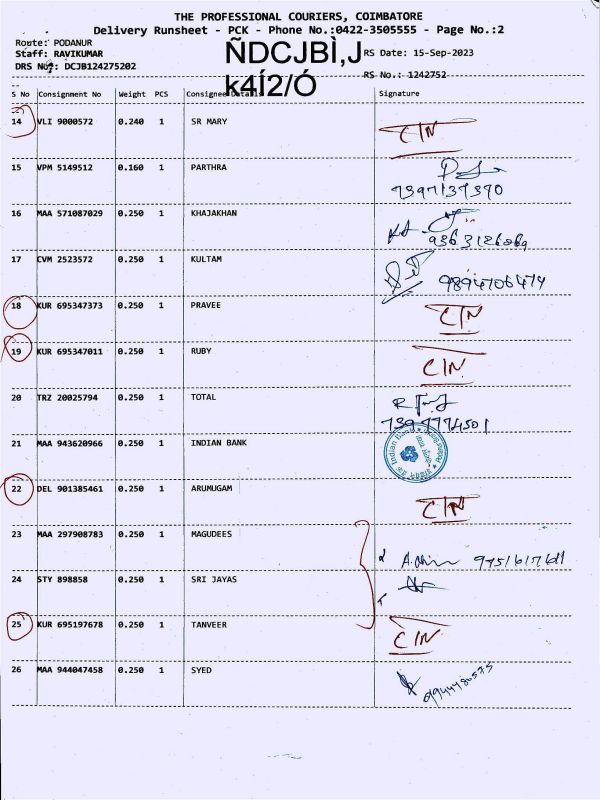 THE PROFESSIONAL COURIERS, COIMBATORE
Delivery Runsheet - PCK - Phone No.:0422-3505555 - Page No.:2
Route: PODANUR
Staff: RAVIKUMAR
DRS No: DCJB124275202
ÑDCJBÌ,J
k4Í2/Ó
RS Date: 15-Sep-2023
RS No.: 1242752
S No Consignment No Weight PCS Consignee Details Signature
14 VLI 9000572 0.240 1 SR MARY CIN
15 VPM 5149512 0.160 1 PARTHRA
7397137370
16 MAA 571087029 0.250 1 KHAJAKHAN
17 CVM 2523572 0.250 1 KULTAM 9894706474
18 KUR 695347373 0.250 1 PRAVEE CIN
19 KUR 695347011 0.250 1 RUBY CIN
20 TRZ 20025794 0.250 1 TOTAL
21 MAA 943620966 0.250 1 INDIAN BANK Indian Bank
22 DEL 901385461 0.250 1 ARUMUGAM CIN
23 MAA 297908783 0.250 1 MAGUDEES
24 STY 898858 0.250 1 SRI JAYAS
25 KUR 695197678 0.250 1 TANVEER CIN
26 MAA 944047458 0.250 1 SYED